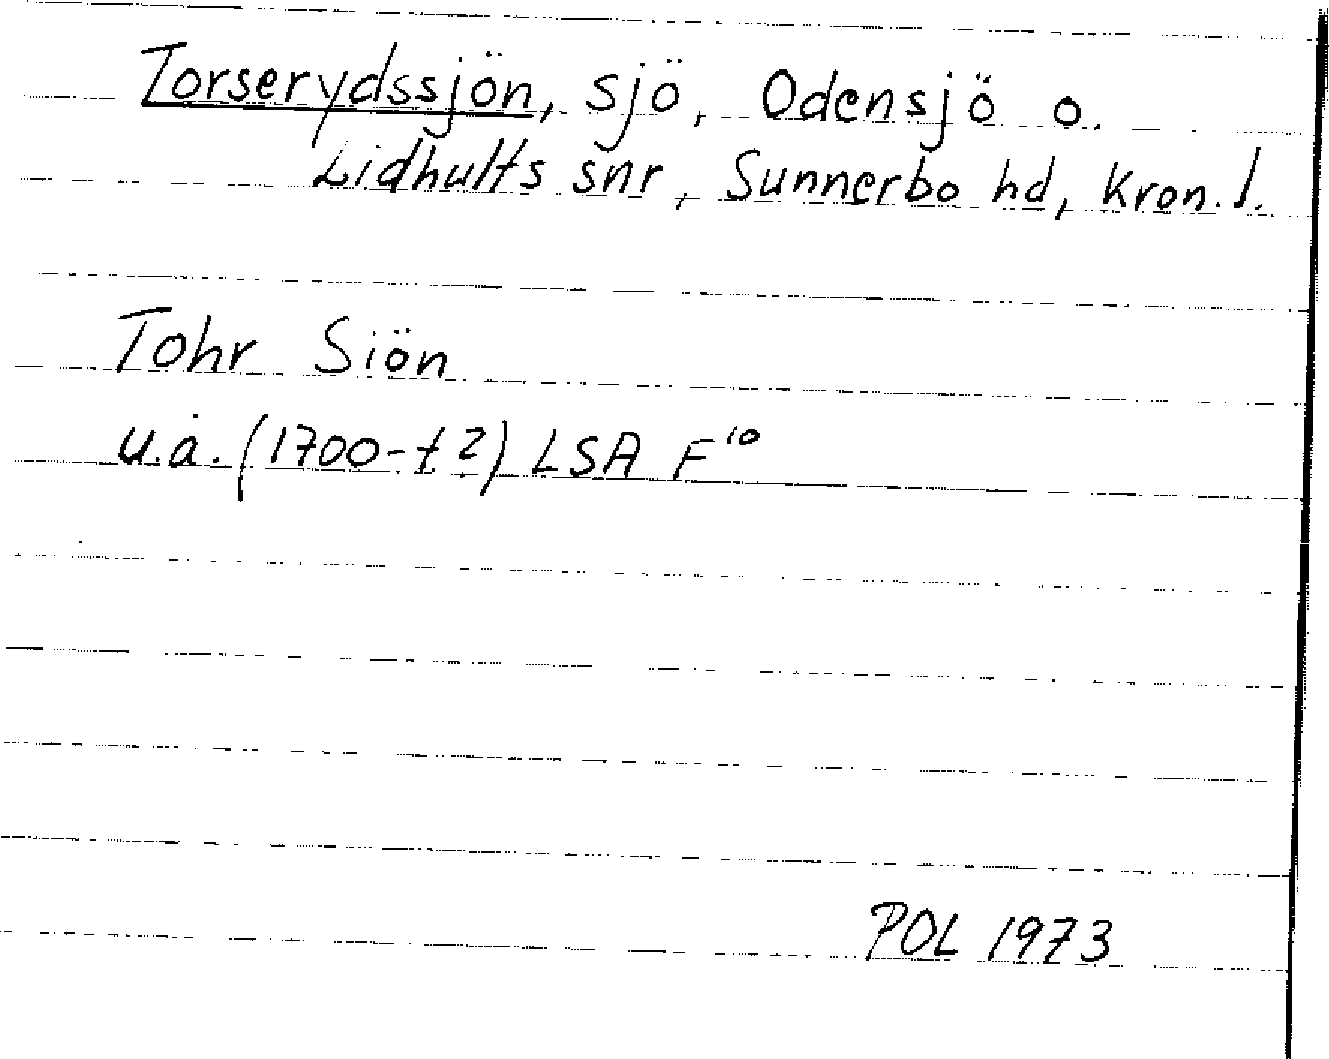 Torserydssjön, sjö, Odensjö o.
Lidhults snr, Sunnerbo hd, Kron. l.
Tohr Siön
u.å. (1700-t?) LSA F¹⁰
POL 1973